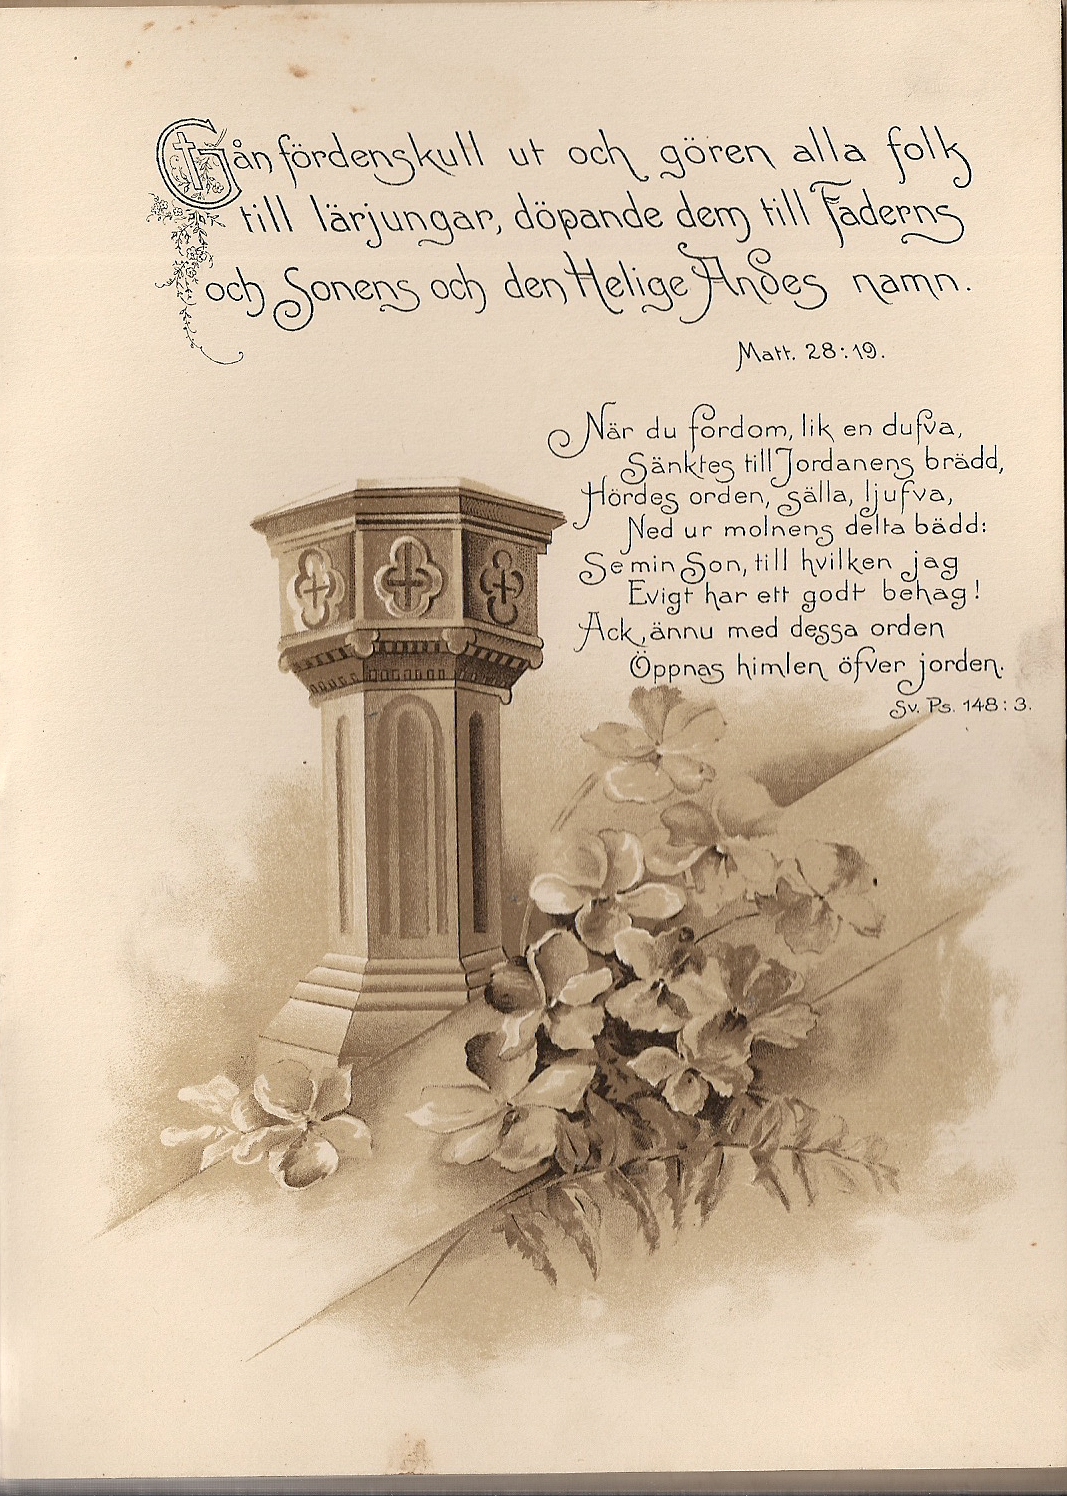 Gån fördenskull ut och gören alla folk
till lärjungar, döpande dem till Faderns
och Sonens och den Helige Andes namn.
Matt. 28:19.
När du fordom, lik en dufva,
Sänktes till Jordanens brädd,
Hördes orden, sälla, ljufva,
Ned ur molnens delta bädd:
Se min Son, till hvilken jag
Evigt har ett godt behag!
Ack, ännu med dessa orden
Öppnas himlen öfver jorden.
Sv. Ps. 148:3.